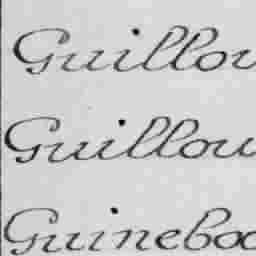 Guillou
Guillou
Guineboo